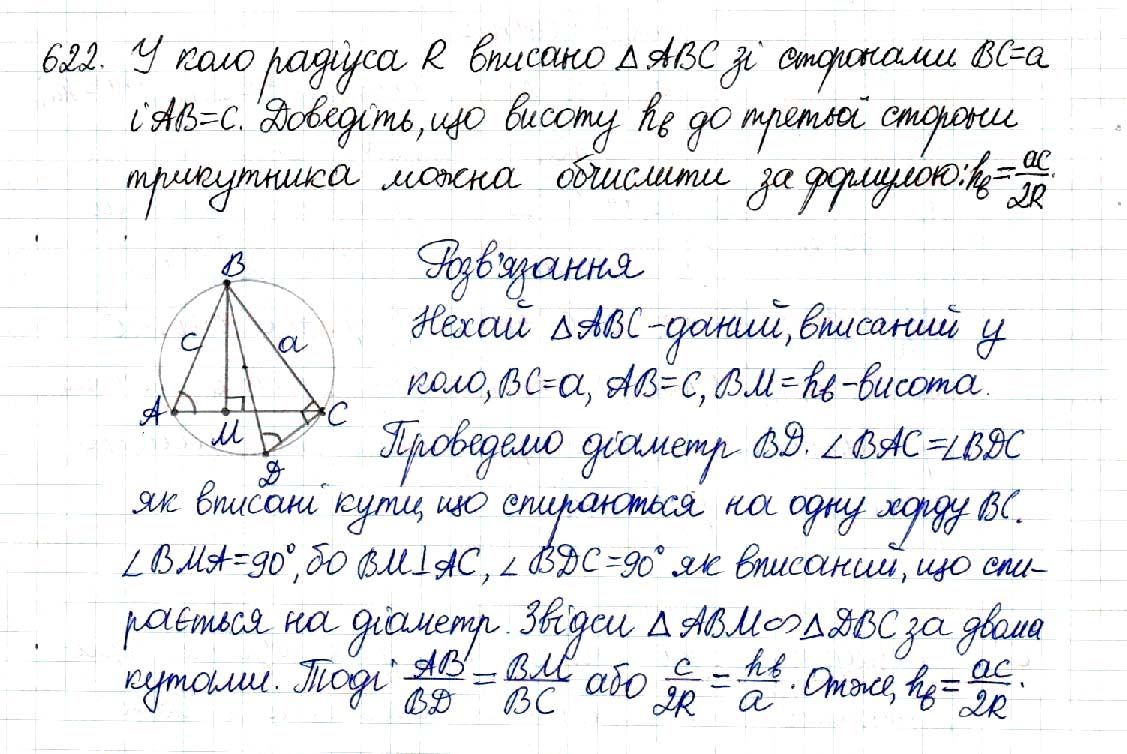 622. У коло радіуса R вписано △ABC зі сторонами BC=a
і AB=c. Доведіть, що висоту hв до третьої сторони
трикутника можна обчислити за формулою: hв=ac/2R.
Розв'язання
B
c
a
A
M
C
D
Нехай △ABC-даний, вписаний у
коло, BC=a, AB=c, BM=hв-висота.
Проведемо діаметр BD. ∠BAC=∠BDC
як вписані кути, що спираються на одну хорду BC.
∠BMA=90°, бо BM⊥AC, ∠BDC=90° як вписаний, що спи-
рається на діаметр. Звідси △ABM∽△DBC за двома
кутами. Тоді AB/BD=BM/BC або c/2R=hв/a. Отже, hв=ac/2R.